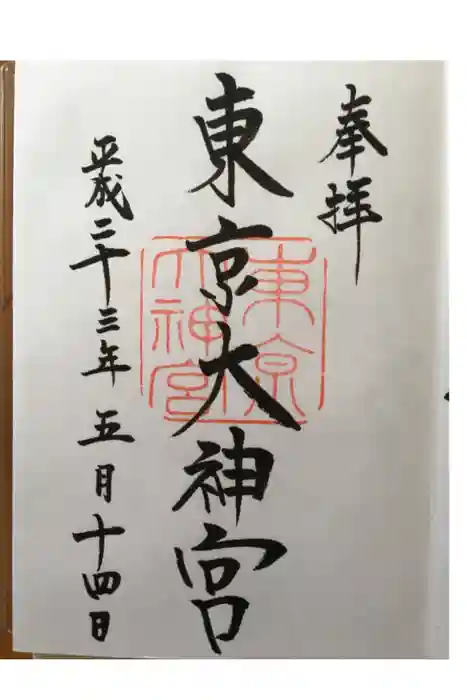 奉拝
東京大神宮
東京
大神宮
平成二十三年五月十四日